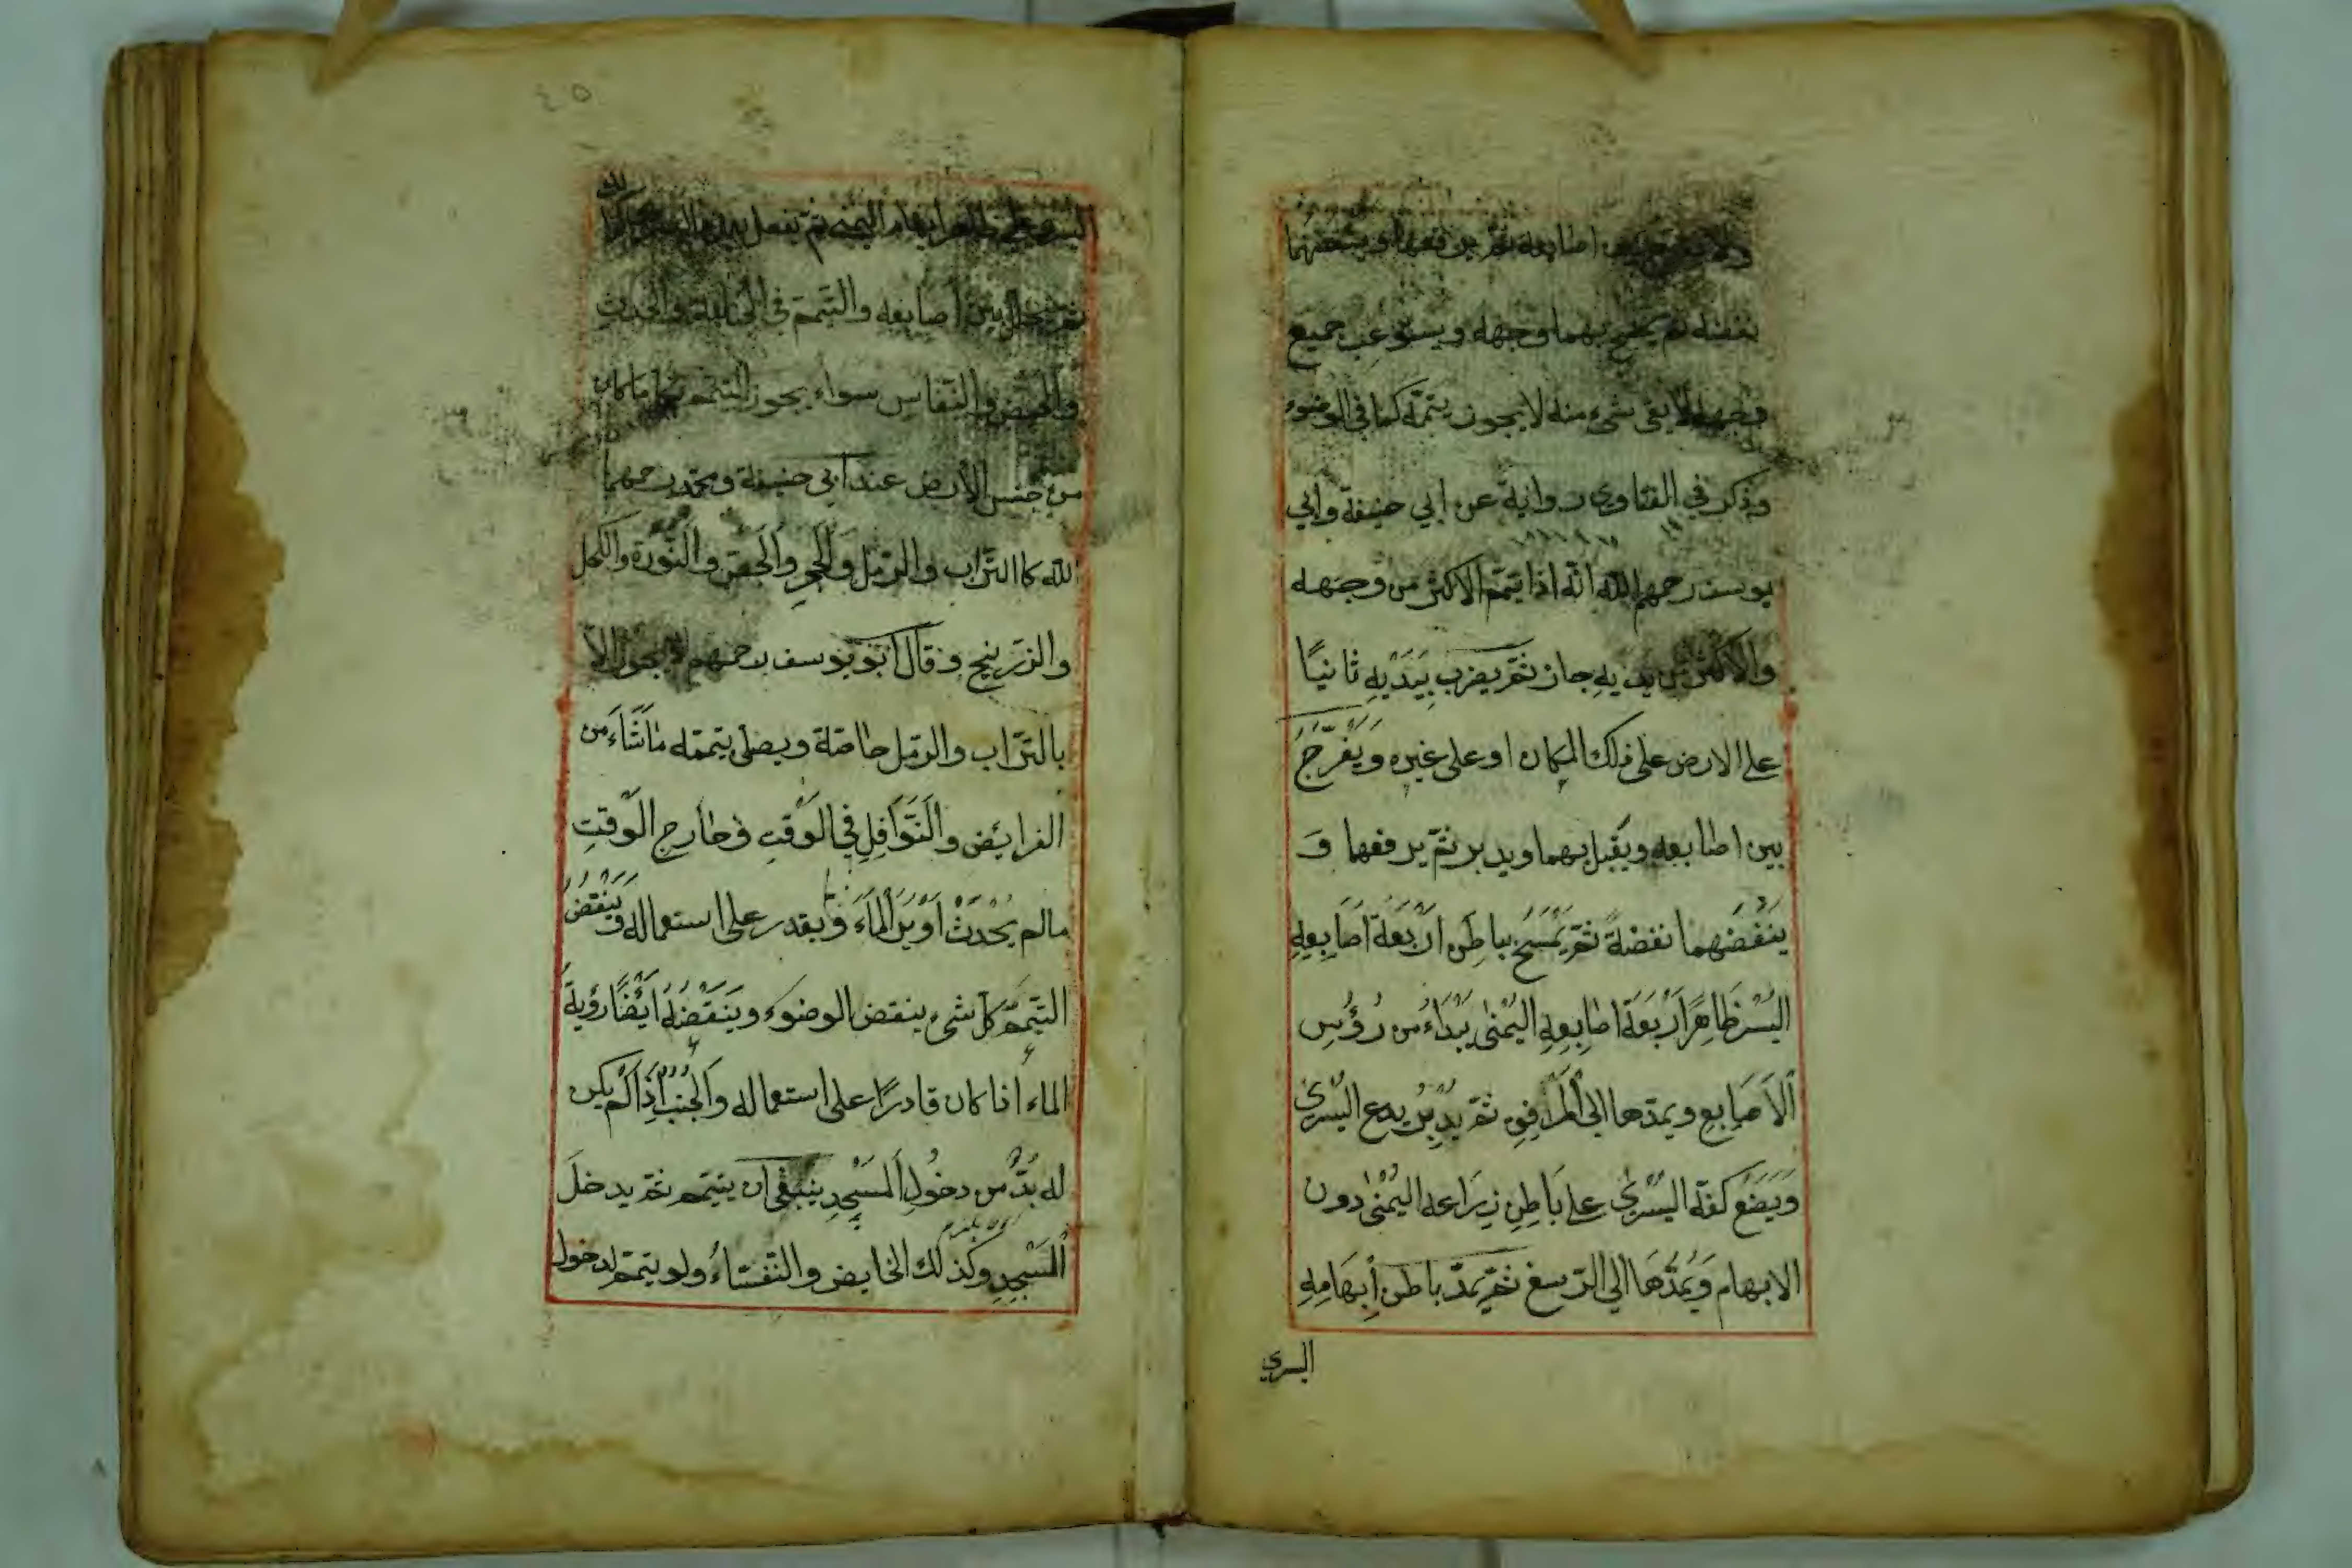 اصابعه ثم يرفعهما وينفضهما
نفضة ثم يمسح بهما وجهه ويستوعب جميع
وجهه لا يبقى شيء منه لا يجوز يتممّه كما في الوضوء
وذكر في الفتاوى رواية عن ابي حنيفة وابي
يوسف رحمهم الله انّه اذا يتمّم الاكثر من وجهه
والاكثر من يديه جاز ثمّ يضرب بِيَدَيْهِ ثانيًا
على الارض على ذلك المكان او على غيره وَيُفَرِّجُ
بين اصابعه ويُقبل بهما ويدبر ثمّ يرفعهما وَ
يَنْفُضُهما نفضةً ثمّ يَمْسَحُ بباطن اَرْبَعَة اَصَابِعِهِ
اليُسْر ظَاهِرًا اَرْبَعَة اصابِعِهِ اليُمْنىٰ يَبْدَاءُ من رُؤُسِ
اَلْاَصَابِعِ ويمدّها الى اَلْمَرَافِقِ ثمّ يدِيْرُ يدع اليُسْرىٰ
وَيَضَعُ كفّه اليُسْرىٰ على بَاطِنِ ذِرَاعه اليُمْنىٰ دون
الابهام وَيَمُدُّهَا الي الرّسغ ثمّ يمدّ باطن اِبْهَامِهِ
اليسري
٤٥
اليسري على ظاهر ابهام اليمنى ثم يفعل بيده اليسرى كذلك
ثم يخلل بين اصابعه والتيمم في الجنابة والحدث
والحيض والنّفاس سواء يجوز التيمم بما كان
من جنس الارض عند ابي حنيفة ومحمد رحمهما
الله كاالتراب والرّمل وَالحَجَرِ وَالجَصّ والنُّوْرَة والكحل
والزّرنيخ وقال ابو يوسف رحمهم لا يجوز الاّ
بالتّراب والرّمل خاصّة ويصلى بتيممّه مَا شَاءَ من
الفرايَض والنَّوَافِلِ في الوَقتِ وخارج الوَقتِ
مالم يُحْدِثْ اَوْ يَرَ الْمَاءَ وَيقدر على استعماله وَيَنْقُضُ
التيمّم كلّ شيء ينقض الوضوء وَيَنْقُضُهُ اَيْضًا رؤيةُ
الماء اذا كان قادرًا على استعماله وَالجُنُبُ اِذَا لَمْ يكن
له بُدٌّ من دخُولِ اَلمسْجِدِ ينبغي ان يتيمم ثمّ يدخل
اَلْمَسْجِدِ وكذلك الحايض والنّفسَاءُ ولو تيمّم لدخول